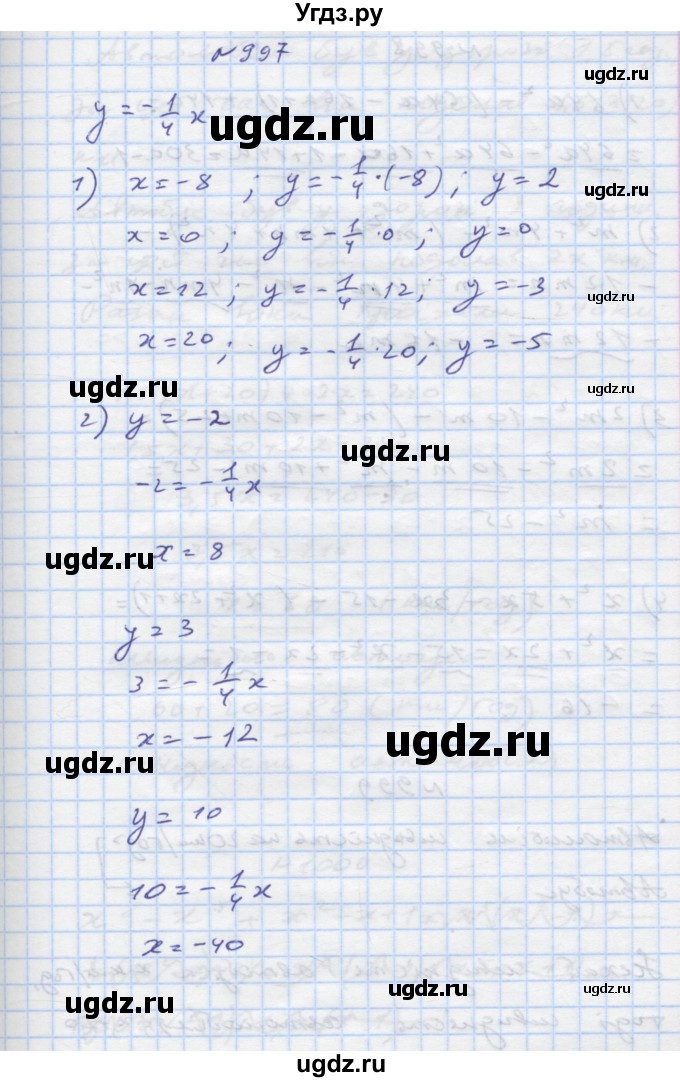 Угдз.ру
№997
ugdz.ru
y = -1/4 x
ugdz.ru
1) x = -8 ; y = -1/4 · (-8) ; y = 2
ugdz.ru
x = 0 ; y = -1/4 · 0 ; y = 0
ugdz.ru
x = 12 ; y = -1/4 · 12 ; y = -3
ugdz.ru
x = 20 ; y = -1/4 · 20 ; y = -5
ugdz.ru
ugdz.ru
2) y = -2
ugdz.ru
-2 = -1/4 x
ugdz.ru
x = 8
ugdz.ru
y = 3
3 = -1/4 x
x = -12
ugdz.ru
ugdz.ru
y = 10
10 = -1/4 x
x = -40
ugdz.ru
ugdz.ru
ugdz.ru
ugdz.ru